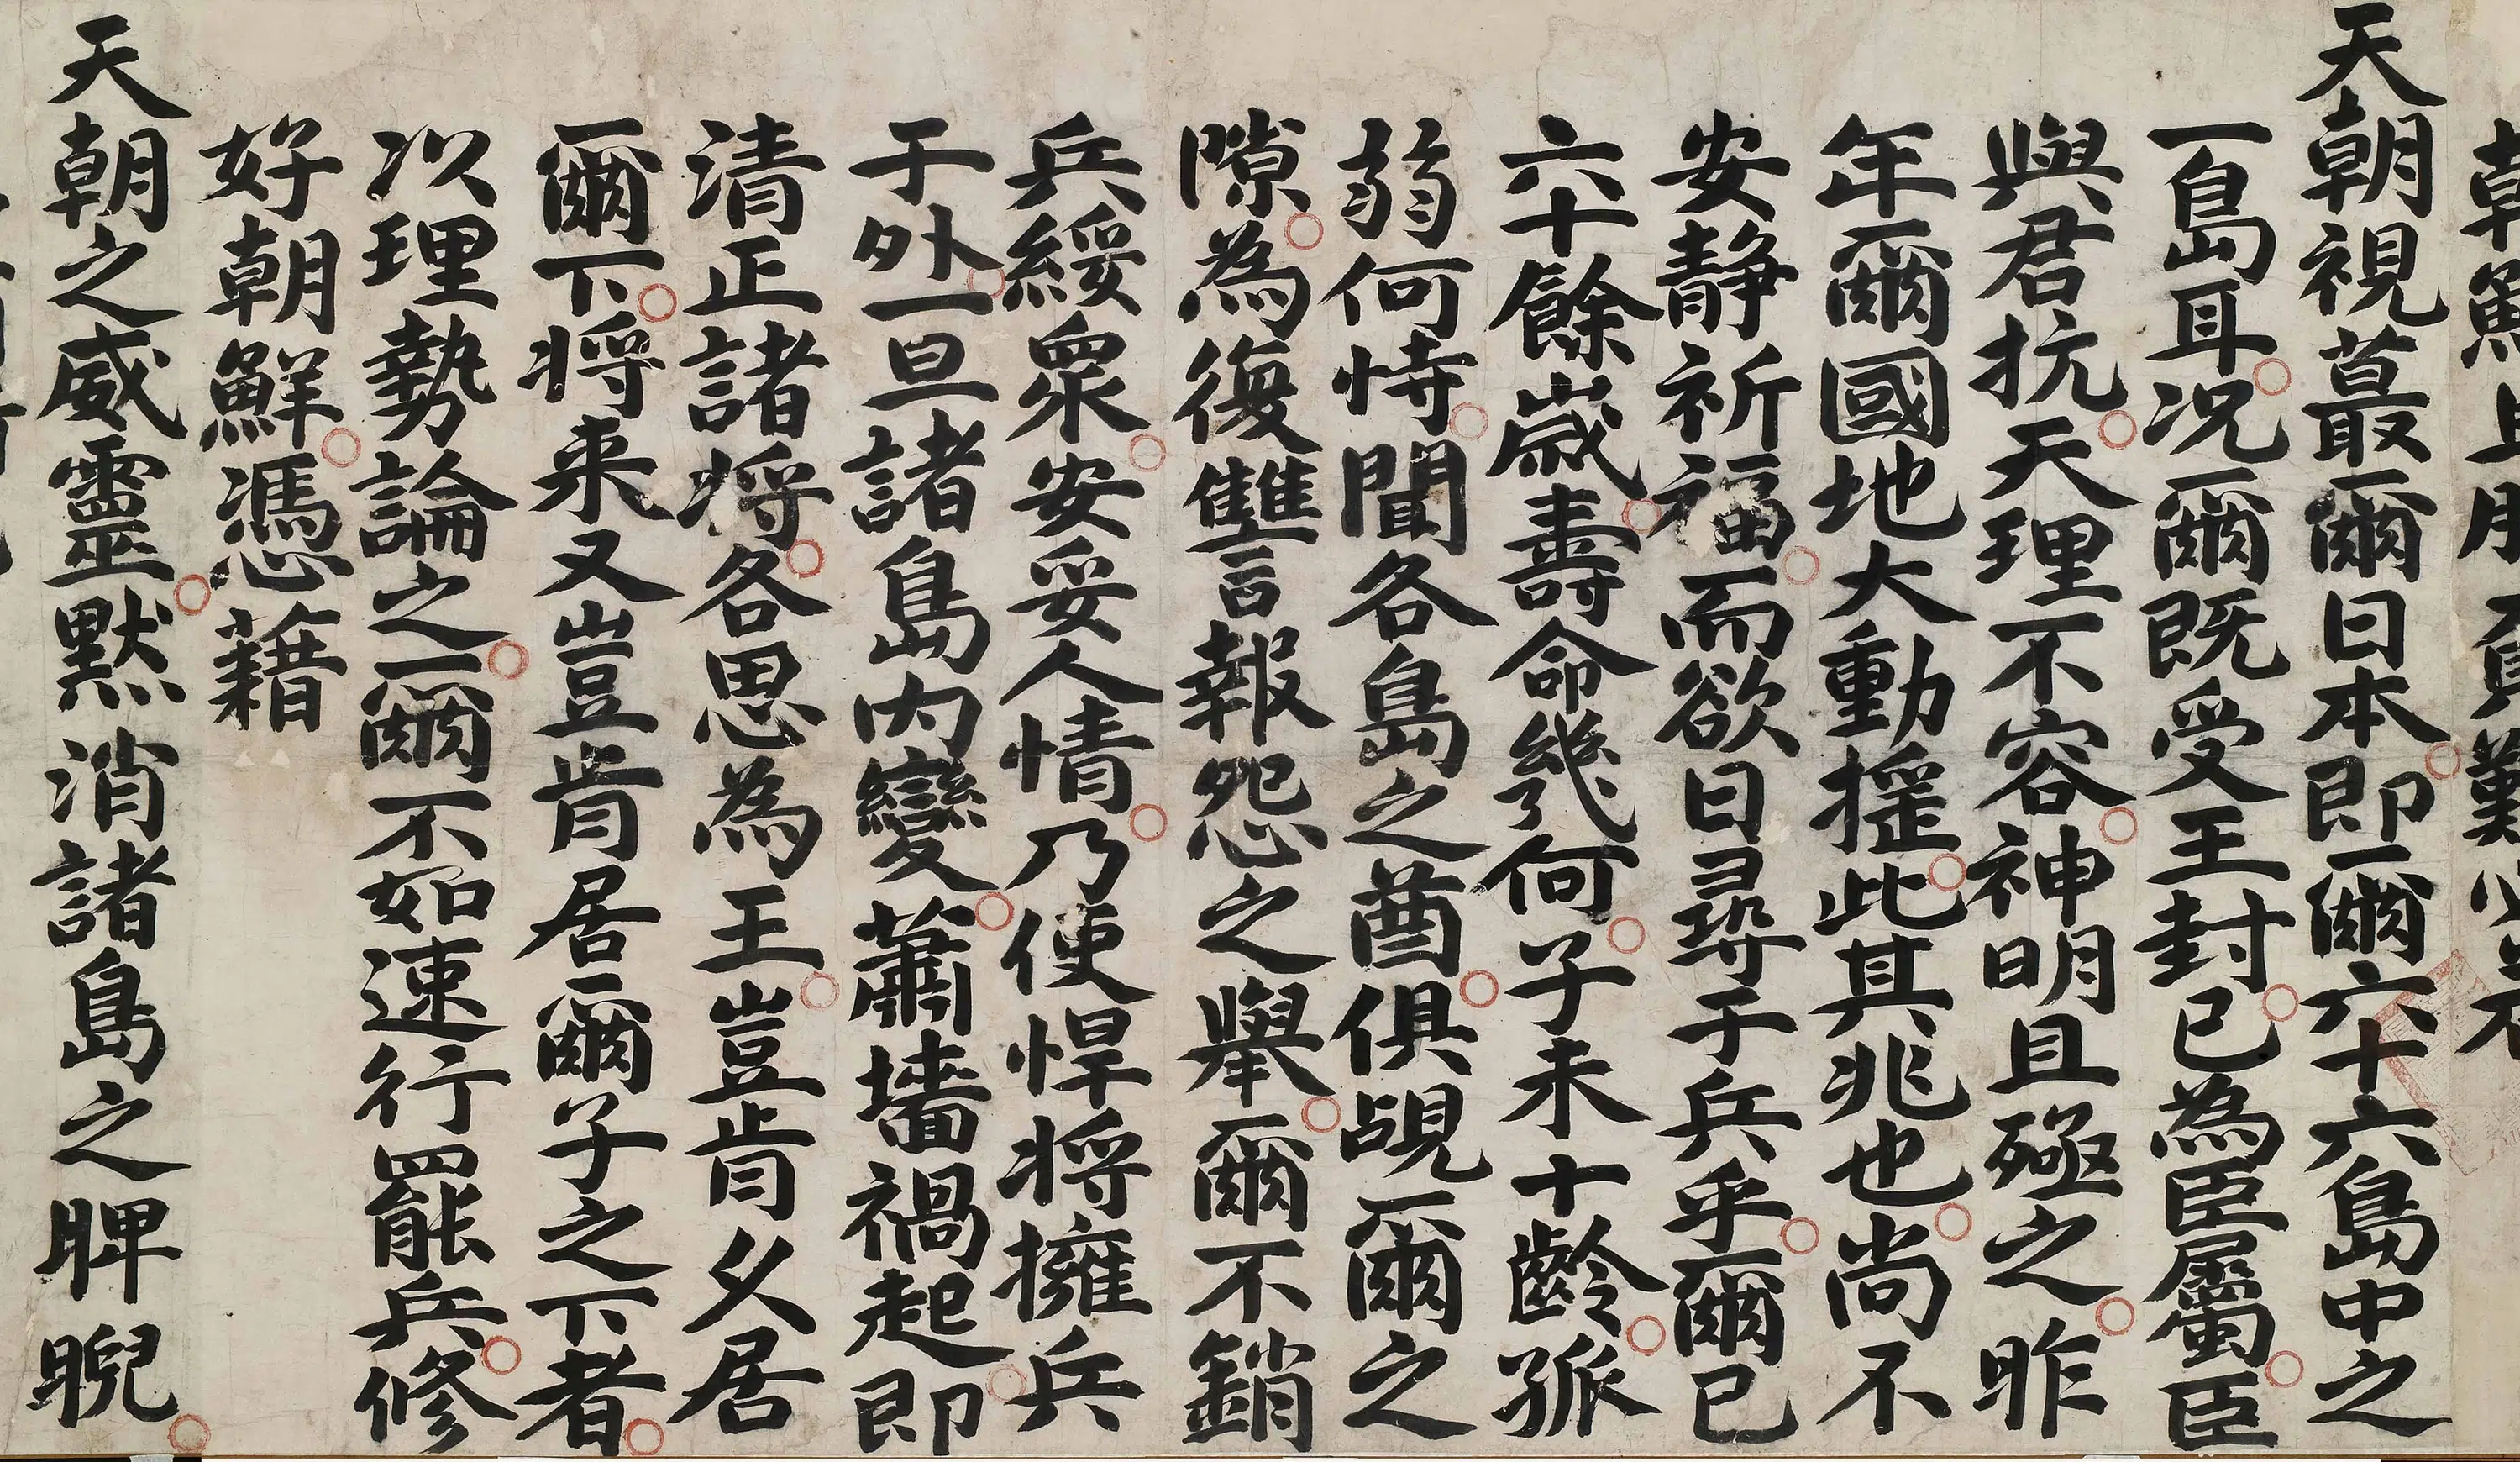 天朝視蕞爾日本即爾六十六島中之
一島耳况爾既受王封已為臣屬臣
與君抗天理不容神明且殛之昨
年爾國地大動摇此其兆也尚不
安静祈福而欲日尋于兵乎爾已
六十餘歲壽命幾何子未十齡孤
弱何恃聞各島之酋俱覘爾之
隙為復讐言報怨之舉爾不銷
兵綏衆安妥人情乃使悍将擁兵
于外一旦諸島内變蕭墻禍起即
清正諸将各思為王豈肯久居
爾下将来又豈肯居爾子之下者
以理勢論之爾不如速行罷兵修
好朝鮮憑藉
天朝之威靈默消諸島之睥睨